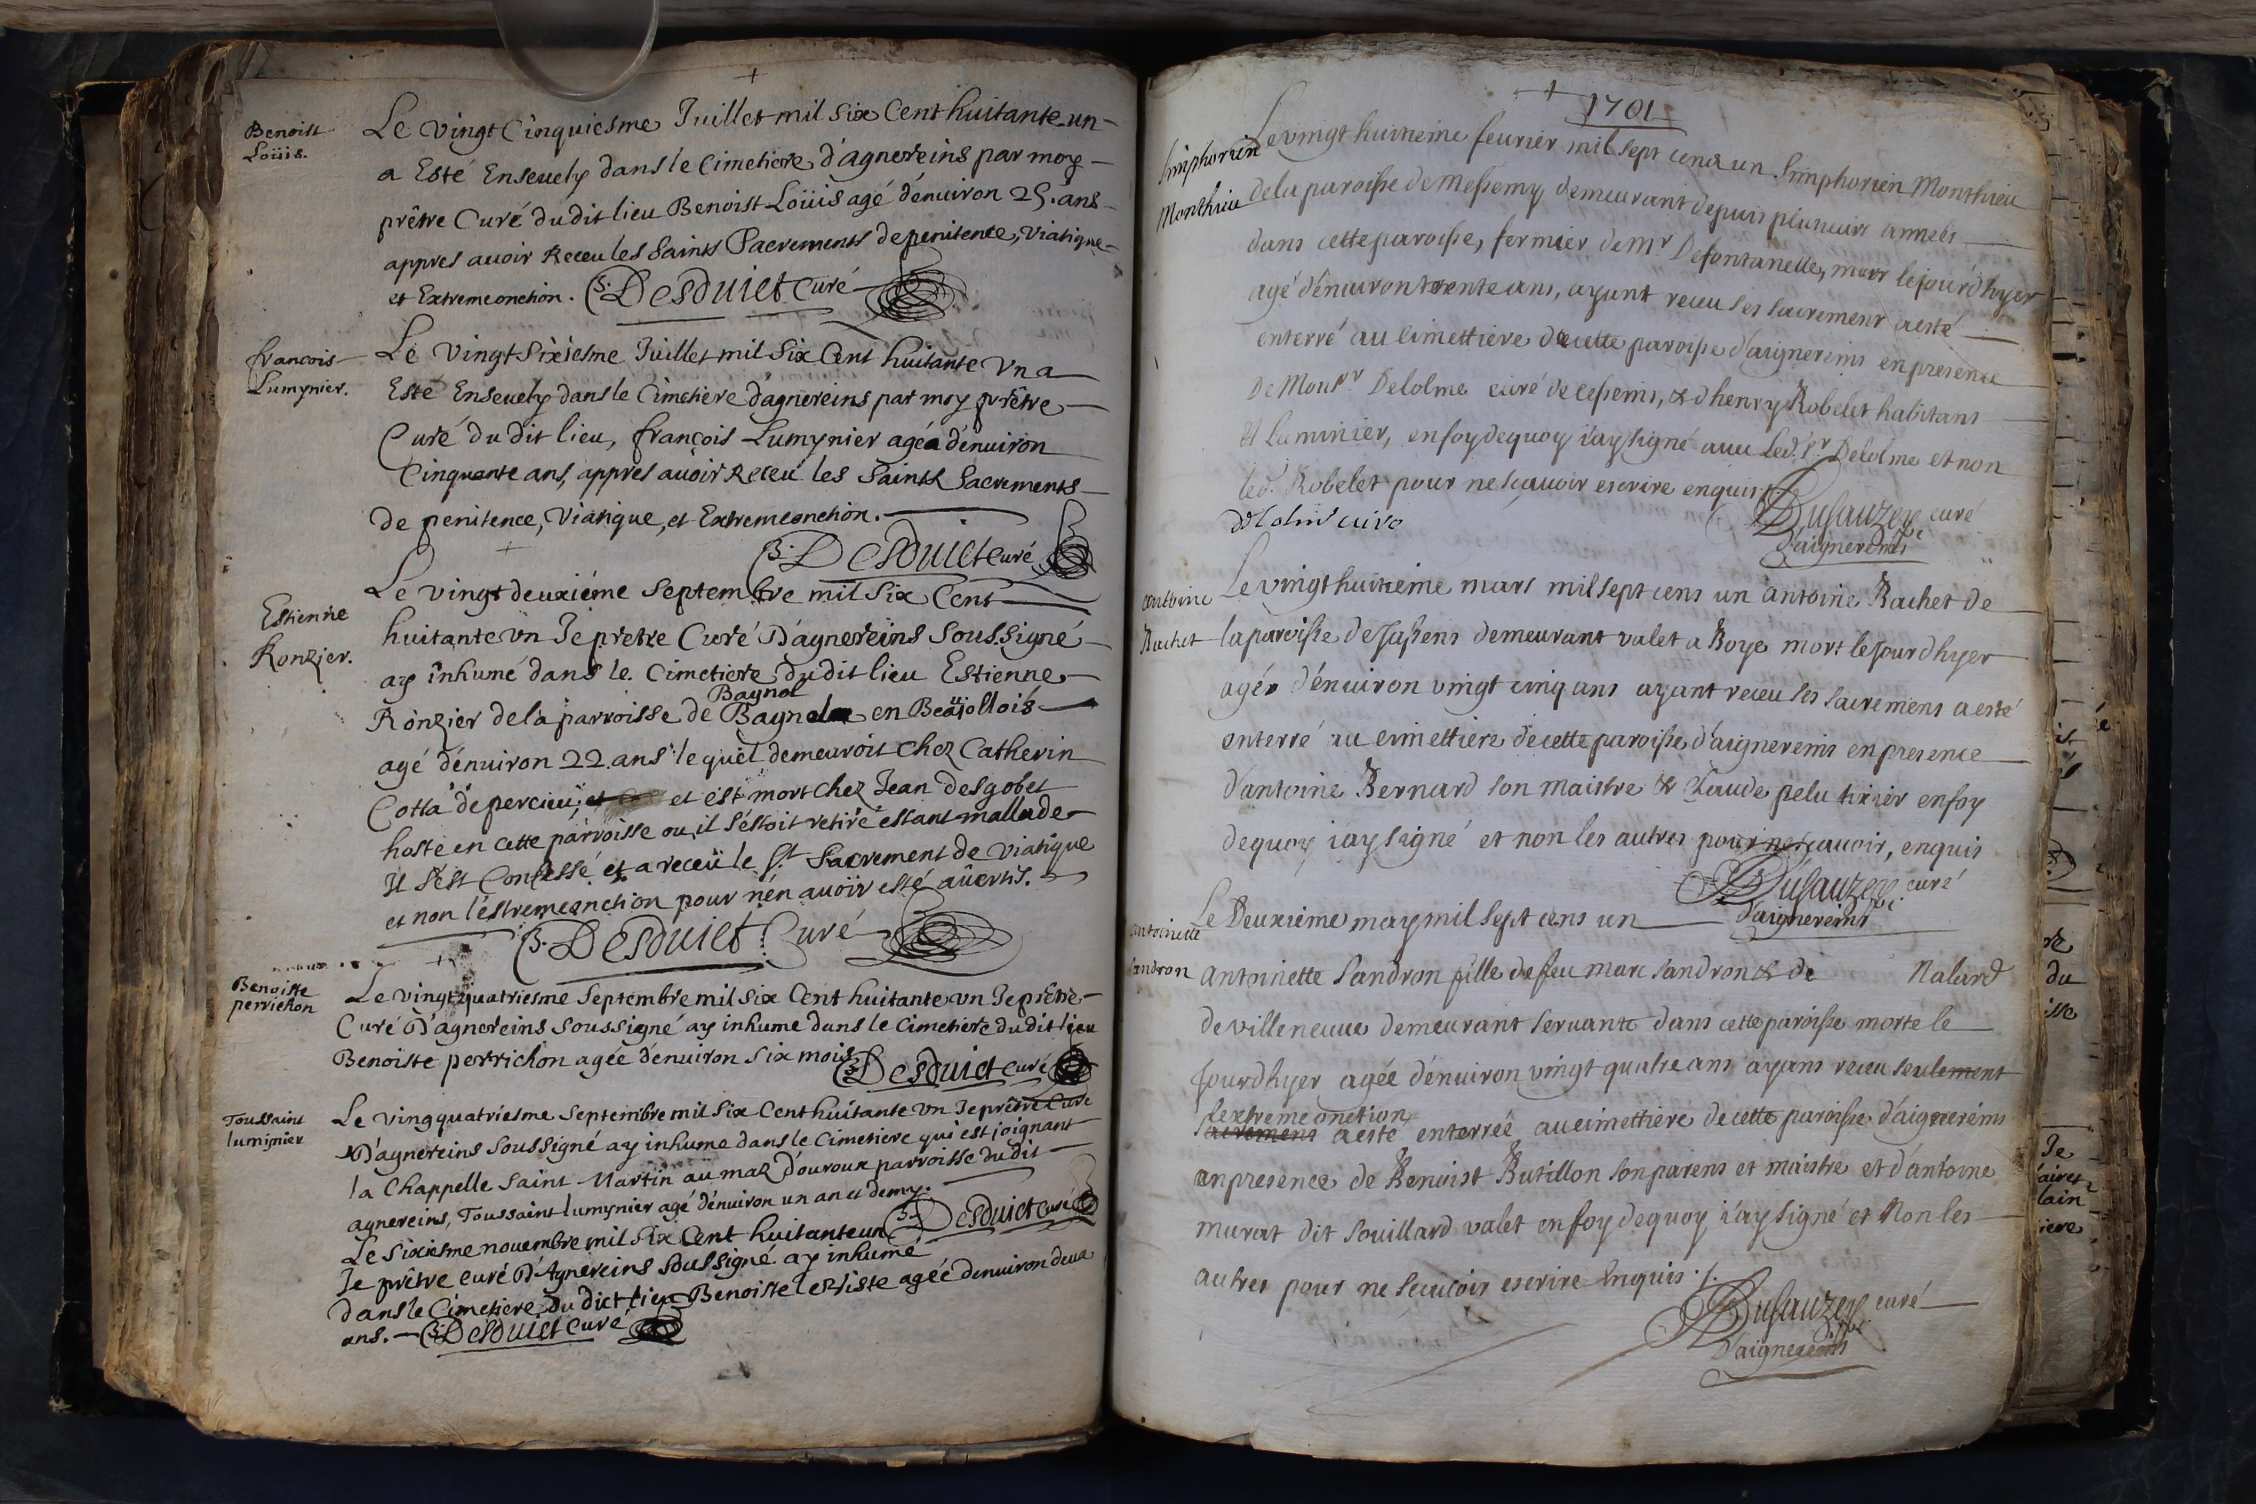 Benoist
Loüis.
Le vingt Cinquiesme Juillet mil six Cent huitante un
a Esté Enseuely dans le Cimetiere d'agnereins par moy
prêtre Curé du dit lieu Benoist Loüis agé d'enuiron 25. ans
appres auoir Receu les saints Sacrements de penitence, Viatique
et Extremeonction. Desduiet Curé
francois
Lumynier.
Le Vingt sixiesme Juillet mil six Cent huitante Vn a
Esté Enseuely dans le Cimetiere d'agnereins par moy prêtre
Curé du dit lieu, françois Lumynier agé d'enuiron
Cinquante ans, appres auoir Receu les saints Sacrements
de penitence, Viatique, et Extremeonction.
Desduiet Curé
Estienne
Ronzier.
Le vingt deuxiéme septembre mil six Cent
huitante Vn Je pretre Curé D'agnereins Soussigné
ay inhumé dans le Cimetiere du dit lieu Estienne
Bagnol
Ronzier de la parroisse de en Beaujollois
agé d'enuiron 22. ans le quel demeuroit chez Catherin
Cotta de percieu, et est mort chez Jean Desgobet
hoste en cette parroisse ou il s'estoit retiré estant mallade
Il s'est Confessé et a receü le St Sacrement de Viatique
et non l'estremeonction pour n'en auoir esté aüertis.
Desduiet Curé
Benoiste
perrichon
Le vingt quatriesme Septembre mil six Cent huitante vn Je prêtre
Curé D'agnereins soussigné ay inhume dans le Cimetiere du dit lieu
Benoiste perrichon agée d'enuiron six mois Desduiet Curé
Toussaint
luminier
Le ving quatriesme Septembre mil six Cent huitante vn Je prêtre Curé
D'agnereins soussigné ay inhume dans le Cimetiere qui est joignant
la Chappelle saint Martin au maz d'ouroux parroisse du dit
agnereins, Toussaint lumynier agé d'enuiron un an et demy.
Desduiet Curé
Le sixiesme nouembre mil six Cent huitante un
Je prêtre curé D'Agnereins soussigné ay inhumé
dans le Cimetiere du dict lieu Benoiste agée denuiron deux
ans. Desduiet Curé
1701
Simphorien
Monthieu
Le vingt huitieme feurier mil sept cens un Simphorien Monthieu
de la paroisse de Messemy demeurant depuis plusieurs années
dans cette paroisse, fermier de Mr Defontanelle, mort le jourdhyer
agé d'enuiron trente ans, ayant receu ses sacrement a esté
enterré au cimettiere de cette paroisse d'aignereins en presence
de Mousr Delolme curé de cesseins, & d'henry Robelet habitans
et Luminier, en foy de quoy i'ay signé auec Led. Sr Delolme et non
led. Robelet pour ne sçauoir escrire enquis
Delolme curé
Dusauzey curé
d'aignereins
antoine
Rachet
Le vingt huitieme mars mil sept cens un antoine Rachet de
la paroisse de Jassens demeurant valet a Boye mort le jour dhyer
agé d'enuiron vingt cinq ans ayant receu ses sacremens a esté
enterré au cimettiere de cette paroisse d'aignereins en presence
d'antoine Bernard son maistre & Claude pelu tixier en foy
de quoy i'ay signé et non les autres pour ne sçauoir, enquis
Dusauzey curé
d'aignereins
antoinette
Sandron
Le Deuxieme may mil sept cens un
antoinette Sandron fille de feu marc sandron & de Nalard
de villeneuue demeurant seruante dans cette paroisse morte le
jourdhyer agée d'enuiron vingt quatre ans ayans receu seulement
l'extreme onction
sacremens a esté enterrée au cimettiere de cette paroisse d'aignereins
en presence de Benoist Butillon son parens et maistre et d'antoine
murat dit Souillard valet en foy de quoy i'ay signé et Non les
autres pour ne sçauoir escrire Enquis
Dusauzey curé
d'aignereins